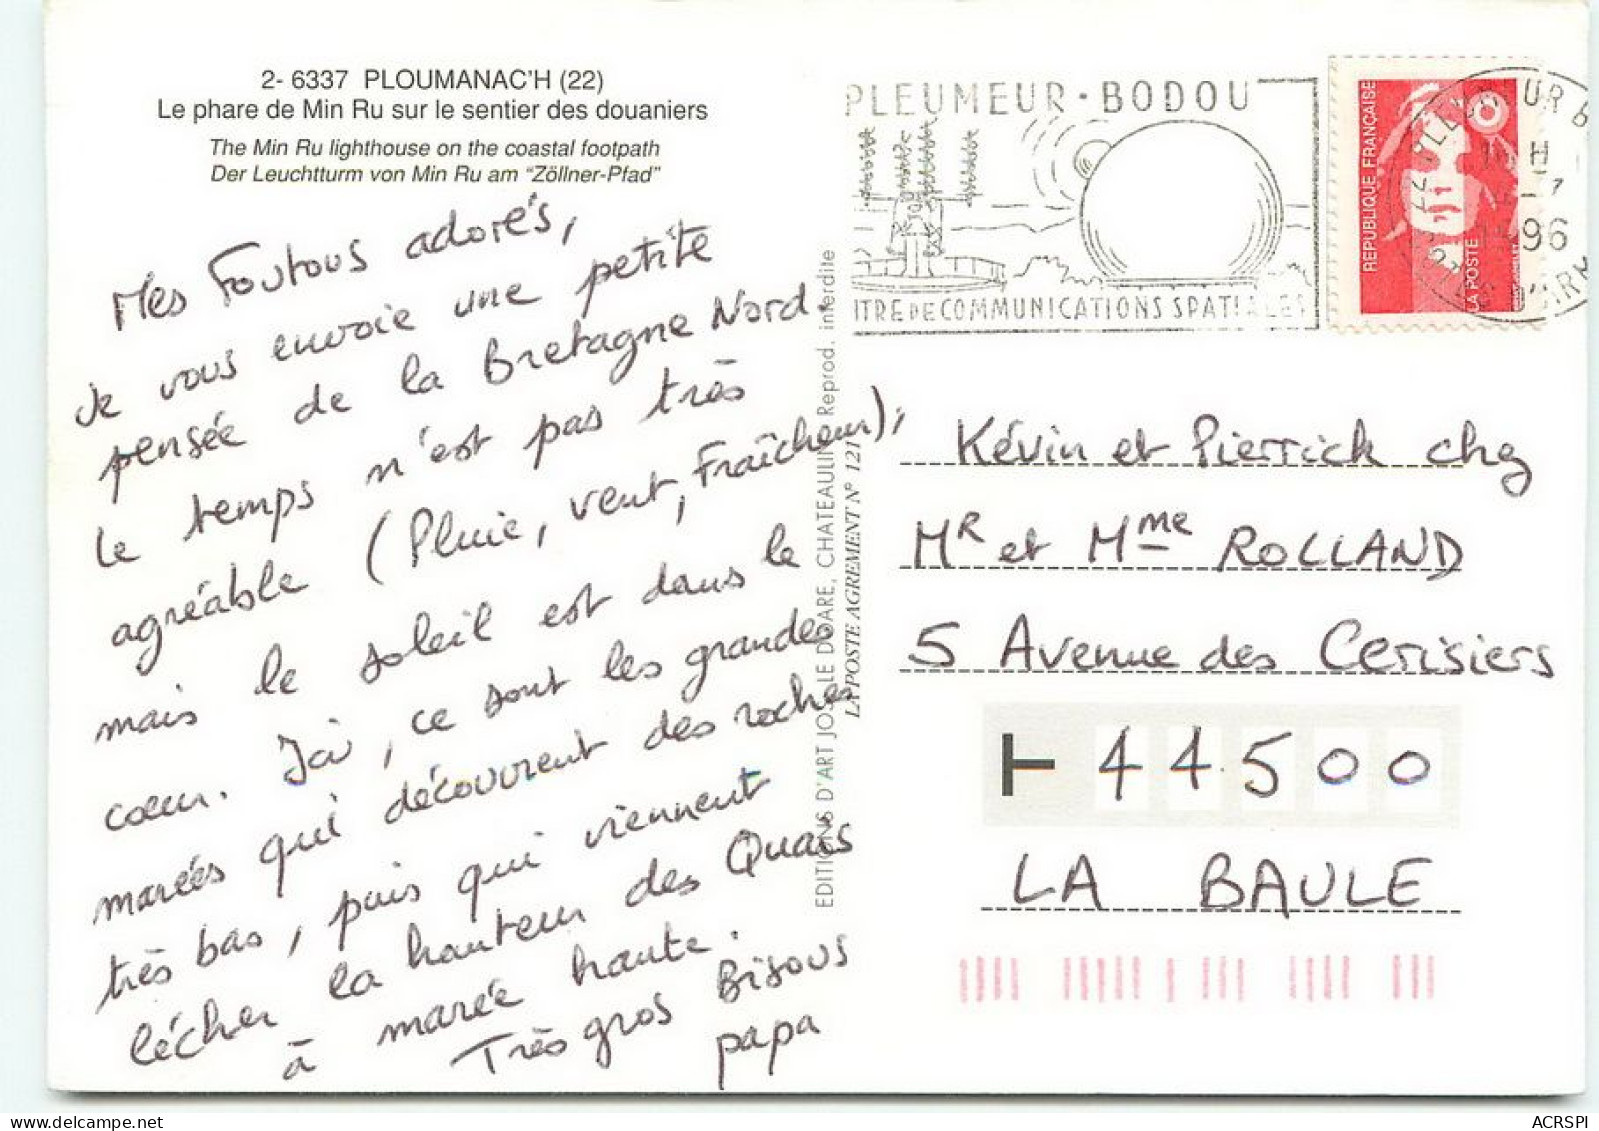 2- 6337 PLOUMANAC'H (22)
Le phare de Min Ru sur le sentier des douaniers
The Min Ru lighthouse on the coastal footpath
Der Leuchtturm von Min Ru am "Zöllner-Pfad"
Mes Foutous adorés,
Je vous envoie une petite
pensée de la Bretagne Nord.
Le temps n'est pas très
agréable (Pluie, vent, Fraîcheur),
mais le soleil est dans le
cœur. Ici, ce sont les grandes
marées qui découvrent des roches
très bas, puis qui viennent
lécher la hauteur des Quais
à marée haute.
Très gros Bisous
papa
EDITIONS D'ART JOS LE DOARE, CHATEAULIN Reprod. interdite
LA POSTE AGREMENT N° 1211
PLEUMEUR-BODOU
NTRE DE COMMUNICATIONS SPATIALES
REPUBLIQUE FRANÇAISE
LA POSTE
96
Kévin et Pierrick chez
MR et Mme ROLLAND
5 Avenue des Cerisiers
44500
LA BAULE
ACRSPI